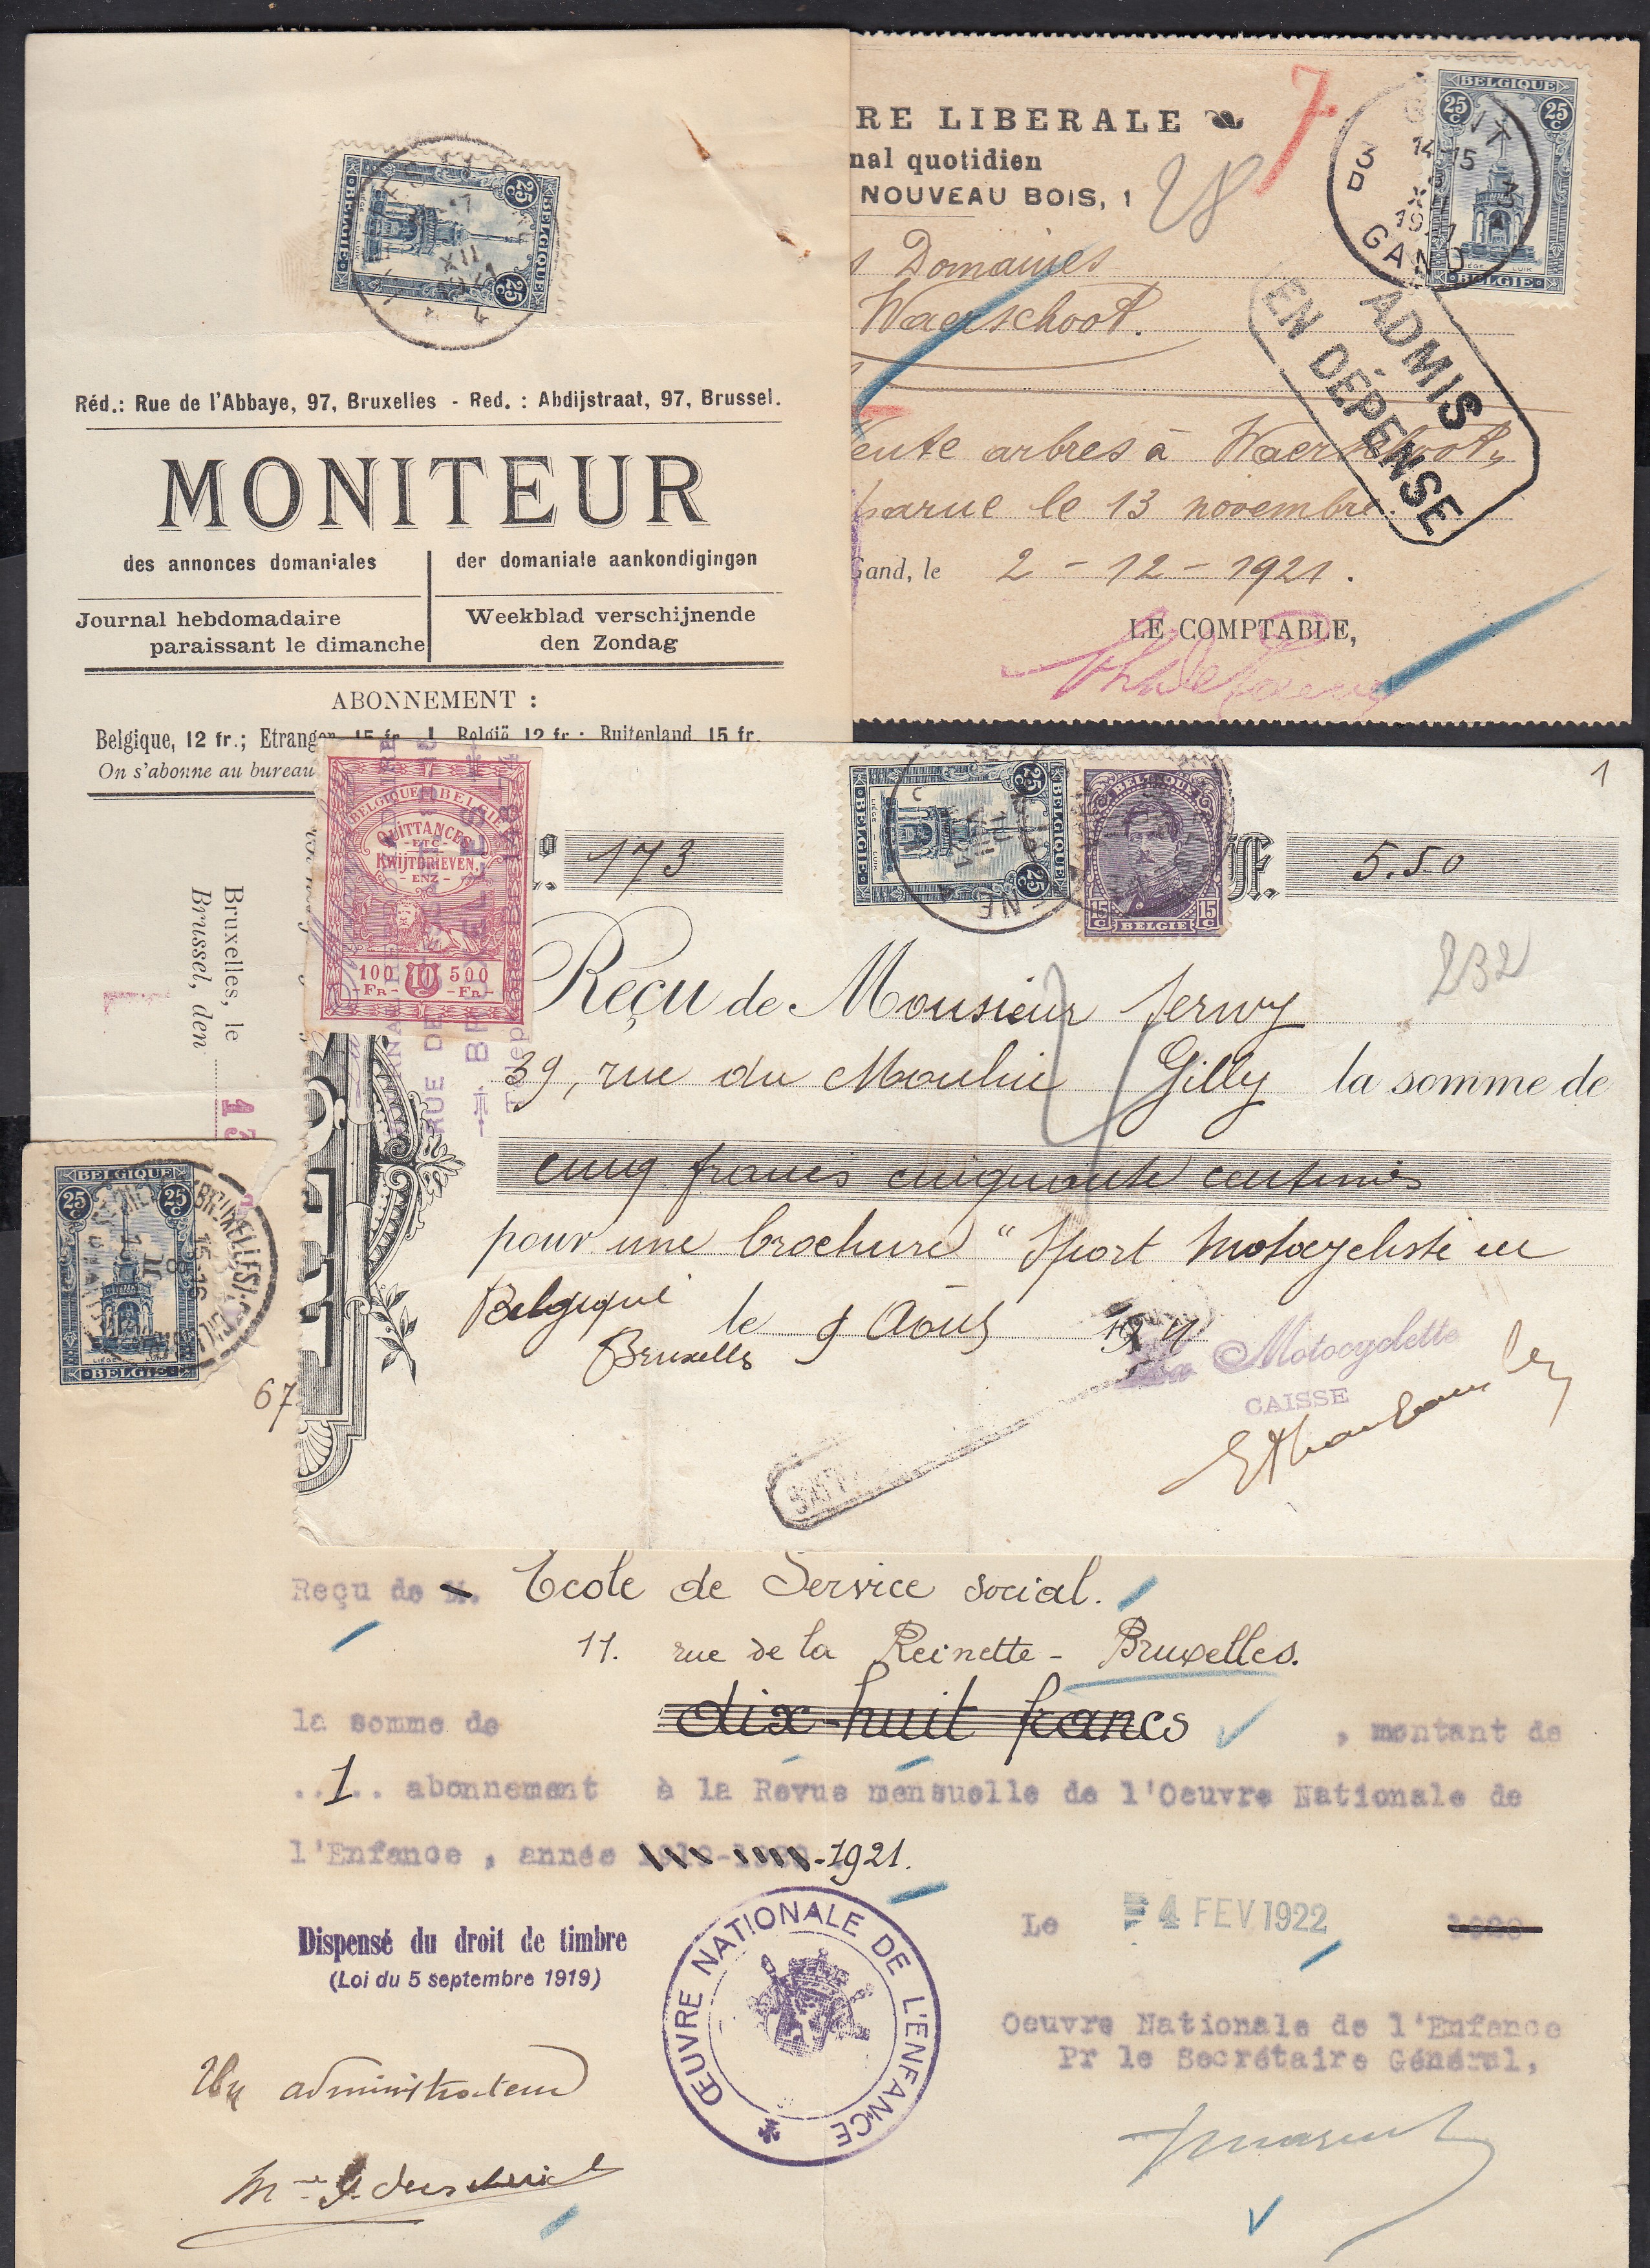 BELGIQUE
25 c 25 c
LIÉGE LUIK
BELGIË
XII
4
Réd.: Rue de l'Abbaye, 97, Bruxelles - Red. : Abdijstraat, 97, Brussel.
MONITEUR
des annonces domaniales
der domaniale aankondigingen
Journal hebdomadaire
paraissant le dimanche
Weekblad verschijnende
den Zondag
ABONNEMENT :
Belgique, 12 fr.; Etranger 15 fr. België 12 fr.; Buitenland 15 fr.
On s'abonne au bureau
Bruxelles, le
Brussel, den
RE LIBERALE
nal quotidien
NOUVEAU BOIS, 1
28
7
BELGIQUE
25 c 25 c
LIÉGE LUIK
BELGIË
14-15
GAND
3 D
s Domaines
Waerschoot.
ADMIS
EN DÉPENSE
ente arbres à Waerschoot,
parue le 13 novembre.
Gand, le 2 - 12 - 1921.
LE COMPTABLE,
BELGIQUE BELGIË
QUITTANCES
- ETC -
KWIJTBRIEVEN
- ENZ -
100 10 500
- FR - - FR -
RUE DE
1
No 173
BELGIQUE
25 c 25 c
LIÉGE LUIK
BELGIË
BELGIQUE
15 c 15 c
BELGIË
F. 5.50
232
Reçu de Monsieur Servy
39, rue du Moulin Gilly la somme de
cinq francs cinquante centimes
pour une brochure "Sport Motocycliste en
Belgique
Bruxelles le 9 Août
La Motocyclette
CAISSE
BELGIQUE
25 c 25 c
LIÉGE LUIK
BELGIË
BRUXELLES
15-16
II
67
Reçu de M. Ecole de Service social.
11. rue de la Reinette - Bruxelles.
la somme de dix-huit francs , montant de
..1.. abonnement à la Revue mensuelle de l'Oeuvre Nationale de
l'Enfance , année -1921.
Dispensé du droit de timbre
(Loi du 5 septembre 1919)
ŒUVRE NATIONALE DE L'ENFANCE
Le 4 FEV 1922 1920
Oeuvre Nationale de l'Enfance
Pr le Secrétaire Général,
Un administrateur